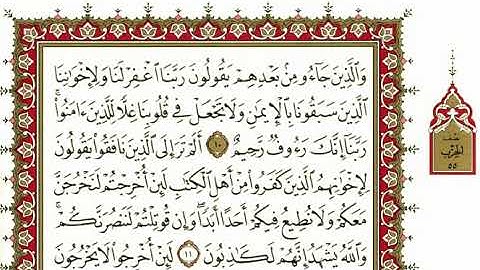 وَٱلَّذِينَ جَآءُو مِنۢ بَعۡدِهِمۡ يَقُولُونَ رَبَّنَا ٱغۡفِرۡ لَنَا وَلِإِخۡوَٰنِنَا
ٱلَّذِينَ سَبَقُونَا بِٱلۡإِيمَٰنِ وَلَا تَجۡعَلۡ فِي قُلُوبِنَا غِلّٗا لِّلَّذِينَ ءَامَنُواْ
رَبَّنَآ إِنَّكَ رَءُوفٞ رَّحِيمٌ ١٠ أَلَمۡ تَرَ إِلَى ٱلَّذِينَ نَافَقُواْ يَقُولُونَ
لِإِخۡوَٰنِهِمُ ٱلَّذِينَ كَفَرُواْ مِنۡ أَهۡلِ ٱلۡكِتَٰبِ لَئِنۡ أُخۡرِجۡتُمۡ لَنَخۡرُجَنَّ
مَعَكُمۡ وَلَا نُطِيعُ فِيكُمۡ أَحَدًا أَبَدٗا وَإِن قُوتِلۡتُمۡ لَنَنصُرَنَّكُمۡ
وَٱللَّهُ يَشۡهَدُ إِنَّهُمۡ لَكَٰذِبُونَ ١١ لَئِنۡ أُخۡرِجُواْ لَا يَخۡرُجُونَ
نصف
الحزب
٥٥